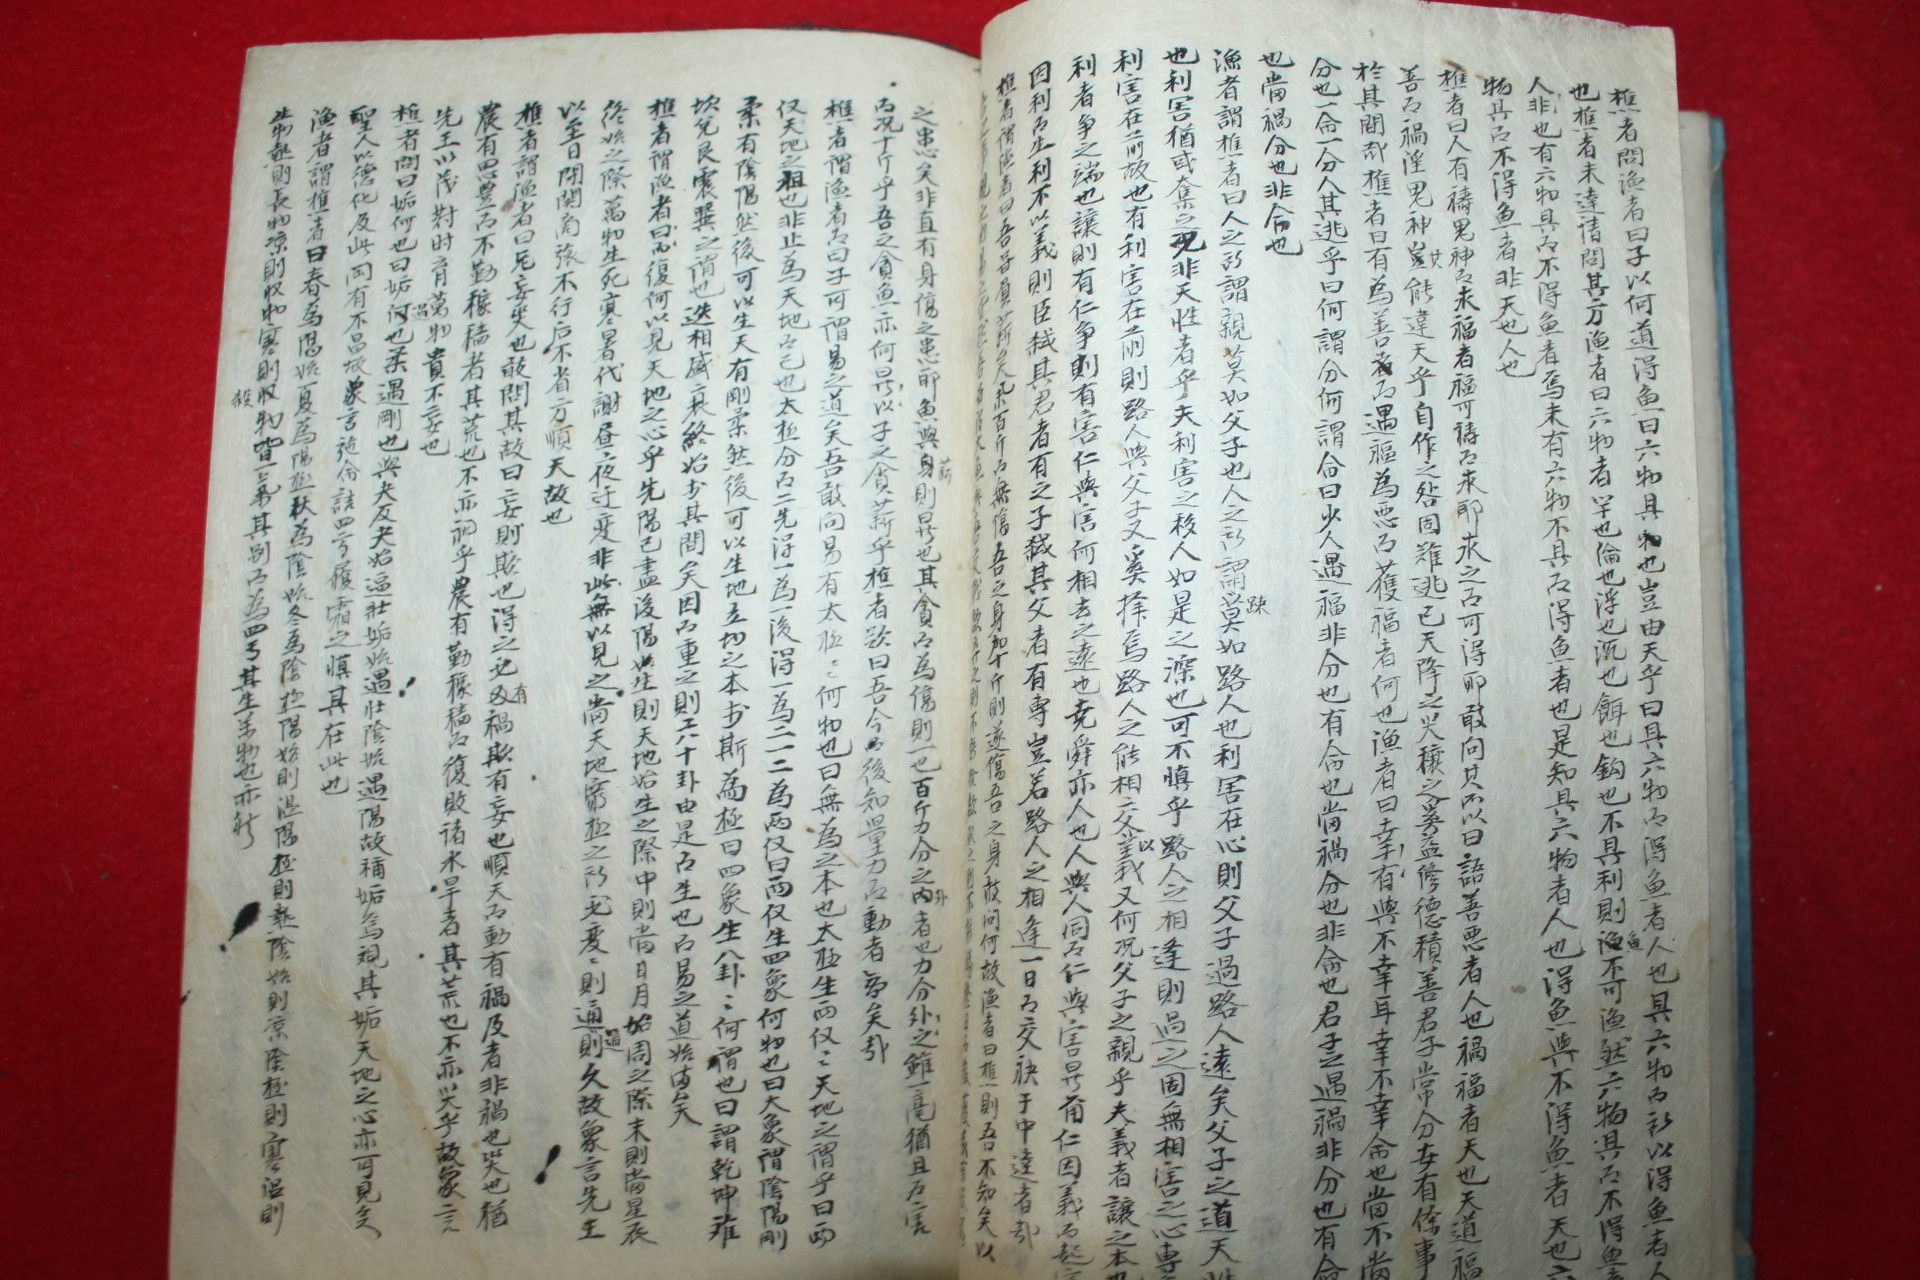 樵者問漁者曰子以何道得魚曰六物具也豈由天乎曰具六物而得魚者人也具六物而所以得魚者人
也樵者未達請問其方漁者曰六物者竿也倫也浮也沉也餌也鈎也不具利則魚不可漁然六物具而不得魚者
人非也有六物具而不得魚者焉未有六物不具而得魚者也是知具六物者人也得魚與不得魚者天也六
物具而不得魚者非天也人也
樵者曰人有禱鬼神而求福者福可禱而求耶求之而可得耶敢問其所以曰語善惡者人也禍福者天也天道福
善而禍淫鬼神豈能違天乎自作之咎固難逃已天降之灾禳之奚益修德積善君子常分安有餘事
於其間哉樵者曰有為善而遇禍為惡而獲福者何也漁者曰幸有與不幸耳幸不幸命也當不當
分也一命一分人其逃乎曰何謂分何謂命曰少人遇福非分也有命也當禍分也非命也君子之遇禍非分也有命
也當禍分也非命也
漁者謂樵者曰人之所謂親莫如父子也人之所謂疎莫如路人也利害在心則父子過路人遠矣父子之道天性
也利害猶或奪之況非天性者乎夫利害之移人如是之深也可不慎乎路人之相逢則過之固無相害之心
利害在前故也有利害在前則路人與父子又奚擇焉路人之能相交以義又何况父子之親乎夫義者讓之本也
利者爭之端也讓則有仁爭則有害仁與害何相去之遠也堯舜亦人也人與人同而仁與害異爾仁因義而起
因利而生利不以義則臣弒其君者有之子弒其父者有焉豈若路人之相逢一日而交袂于中逵者哉
樵者謂漁者曰吾嘗負薪矣百斤而無傷吾之身加十斤則遂傷吾之身敢問何故漁者曰樵則吾不知矣以
之患心矣非直有身傷之患耶魚與薪則異也其貪而為傷則一也百斤力分之內者也力分外之雖一毫猶且為害
而况十斤乎吾之貪魚亦何異以子之貪薪乎樵者歎曰吾今而後知量力而動者智矣哉
樵者謂漁者而曰子可謂易之道矣吾敢問易有太極太極何物也曰無為之本也太極生兩仪兩仪天地之謂乎曰兩
仪天地之祖也非止為天地而已也太極分而二先得一為一後得一為二一二為兩仪曰兩仪生四象何物也曰大象謂陰陽剛
柔有陰陽然後可以生天有剛柔然後可以生地立功之本於斯為極曰四象生八卦八卦何謂也曰謂乾坤離
坎兌艮震巽之謂也迭相盛衰終始於其間矣因而重之則六十卦由是而生也而易之道始備矣
樵者謂漁者曰復何以見天地之心乎先陽已盡後陽始生則天地始生之際中則當日月始周之際末則當星辰
終始之際萬物生死寒暑代謝晝夜迁変非此無以見之當天地窮極之所必变变則通通則久故象言先王
以至日閉關商旅不行后不省方順天故也
樵者謂漁者曰无妄災也敢問其故曰妄則欺也得之必有禍欺有妄也順天而動有禍及者非禍也災也猶
農有思豊而不勤稼穡者其荒也不亦禍乎農有勤稼穡而復敗諸水旱者其荒也不亦災乎故象言
先王以茂對時育萬物貴不妄也
樵者問曰姤何也曰姤遇也柔遇剛也與夬反夬始逼壯姤始遇壯陰始遇陽故稱姤焉觀其姤天地之心亦可見矣
聖人以德化及此罔有不昌故象言施命誥四方履霜之慎其在此也
漁者謂樵者曰春為陽始夏為陽極秋為陰始冬為陰極陽始則温陽極則熱陰始則凉陰極則寒温則
生物熱則長物凉則收物寒則殺物皆一氣其別而為四焉其生萬物也亦然